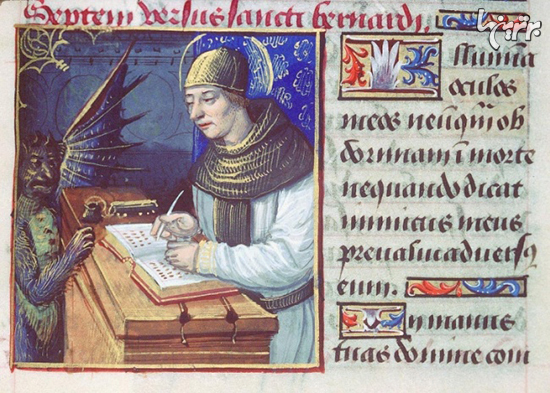 Septem versus sancti bernardi
Illumina
oculos
meos neūq̄m ob
dormiam ī morte
nequando dicat
inimicus meus
preualui aduersꝰ
eum.
In manus
tuas domine com